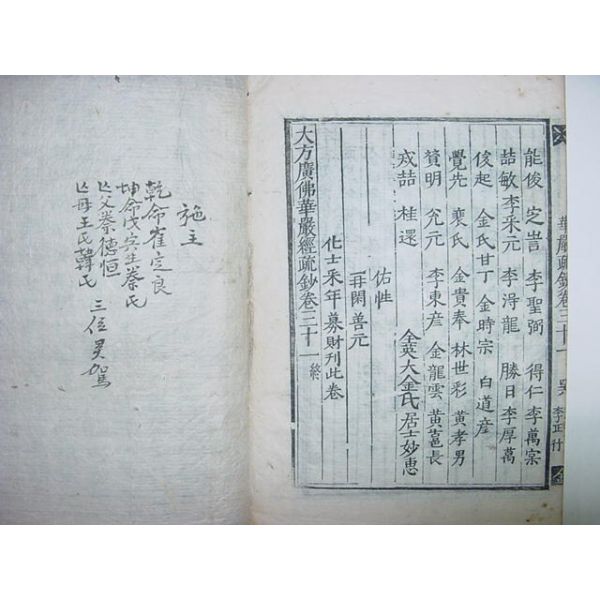 華嚴疏鈔卷三十一
能俊 定岩 李聖弼 得仁 李萬寀
喆敏 李采元 李淂龍 勝日 李厚萬
俊起 金氏甘丁 金時宗 白道彦
覺先 裵氏 金貴奉 林世彩 黃孝男
賛明 㝃元 李東彦 金龍雲 黃富長
戒喆 桂還 全英大 金氏 居士妙惠
佑性
再閑 善元
化士采年 募財刊此卷
大方廣佛華嚴經疏鈔卷三十一 終
施主
乾命崔定良
坤命戊寅生蔡氏
亡父蔡德恒
亡母王氏韓氏
三位灵駕